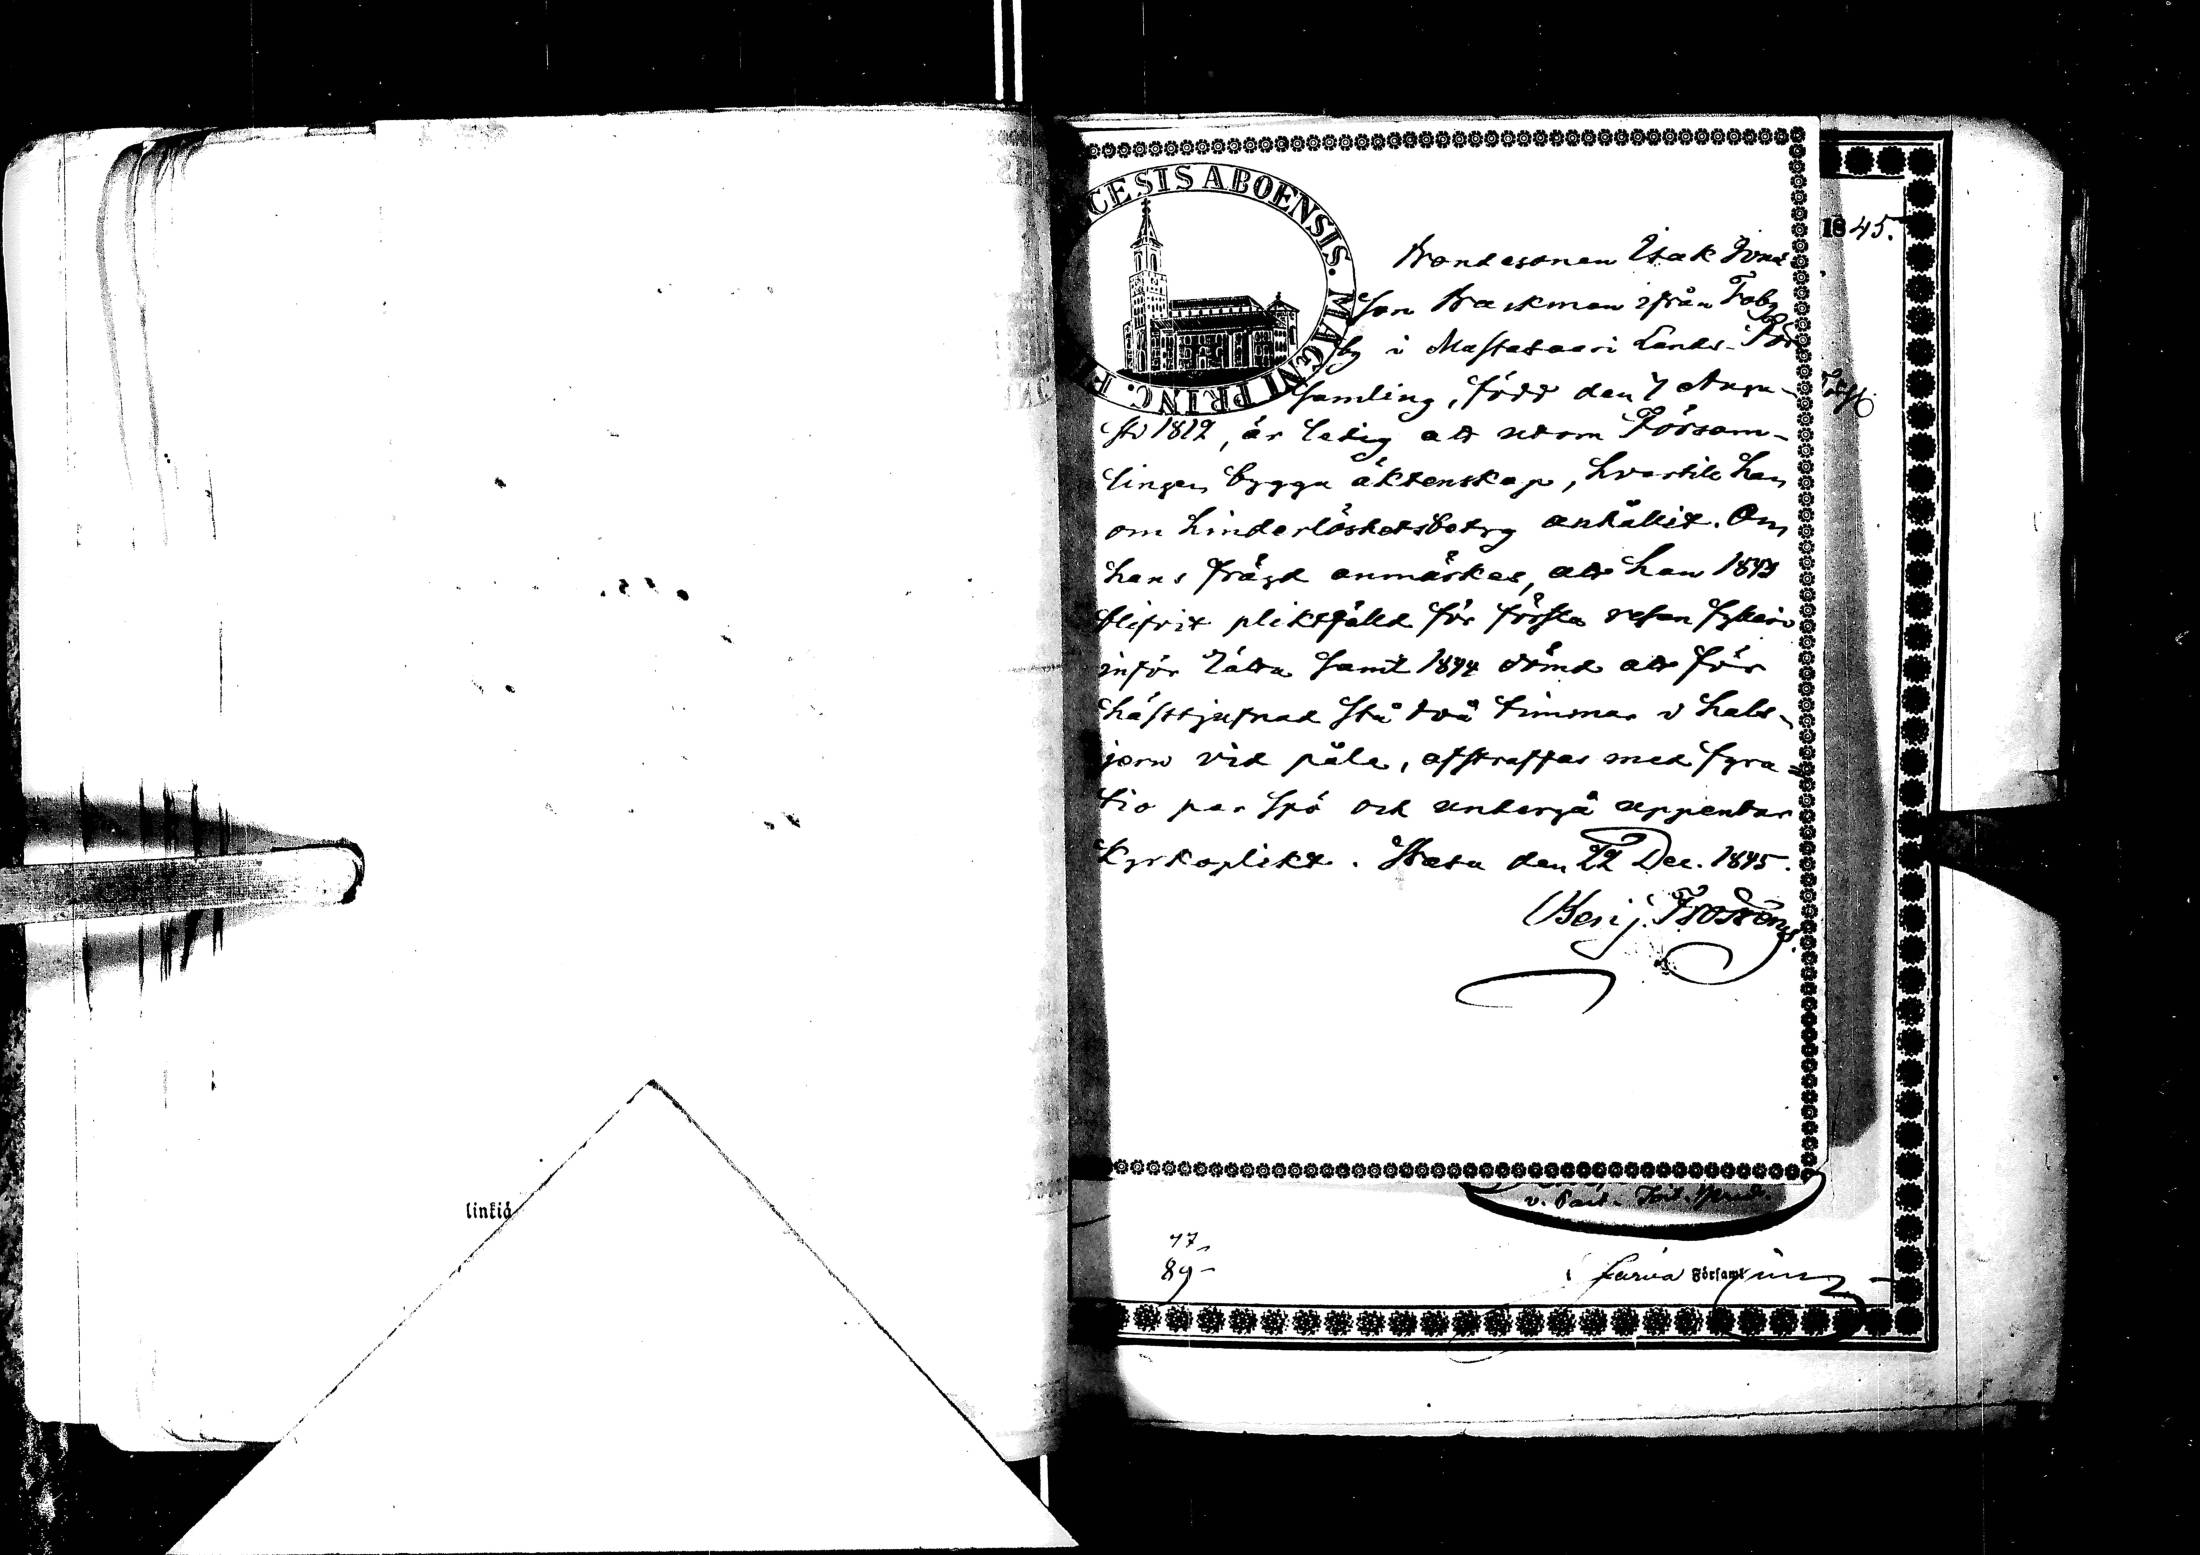 linkiä
CESIS ABOENSIS. MAGNI PRINC. FI
1845.
Bondesonen Isak Jona
son Backman ifrån Toby
by i Mustasaari Lands-För
samling, född den 7 Augu-
sti 1812, är ledig att utom Försam-
lingen bygga äktenskap, hvartill han
om hinderlöshetsbetyg anhållit. Om
hans frägd anmärkes, att han 1843
blifvit pliktfälld för första resan fylleri
inför Rätta samt 1844 dömd att för
hästtjufnad stå två timmar i hals-
jern vid påle, afstraffas med fyra-
tio par spö och undergå uppenbar
Kyrkoplikt. Wasa den 22 Dec. 1845.
Benj. Frosterus.
v. Past.
77
89
i Församl